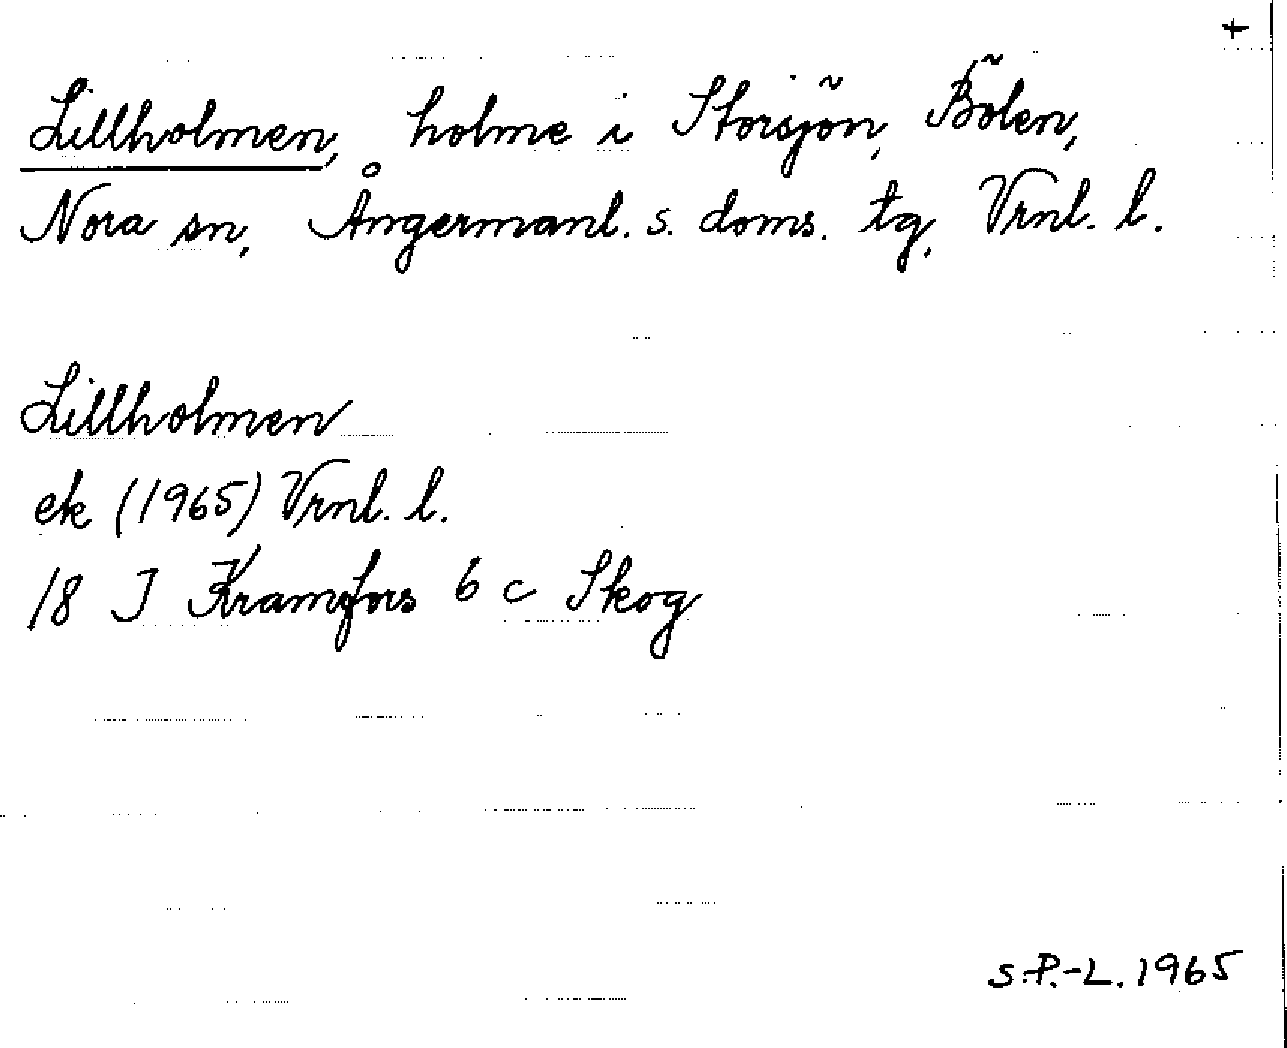 +
Lillholmen, holme i Storsjön, Bölen,
Nora sn, Ångermanl. s. doms. tg, Vrnl. l.
Lillholmen
ek (1965) Vrnl. l.
18 J Kramfors 6 c Skog
S.P.-L. 1965